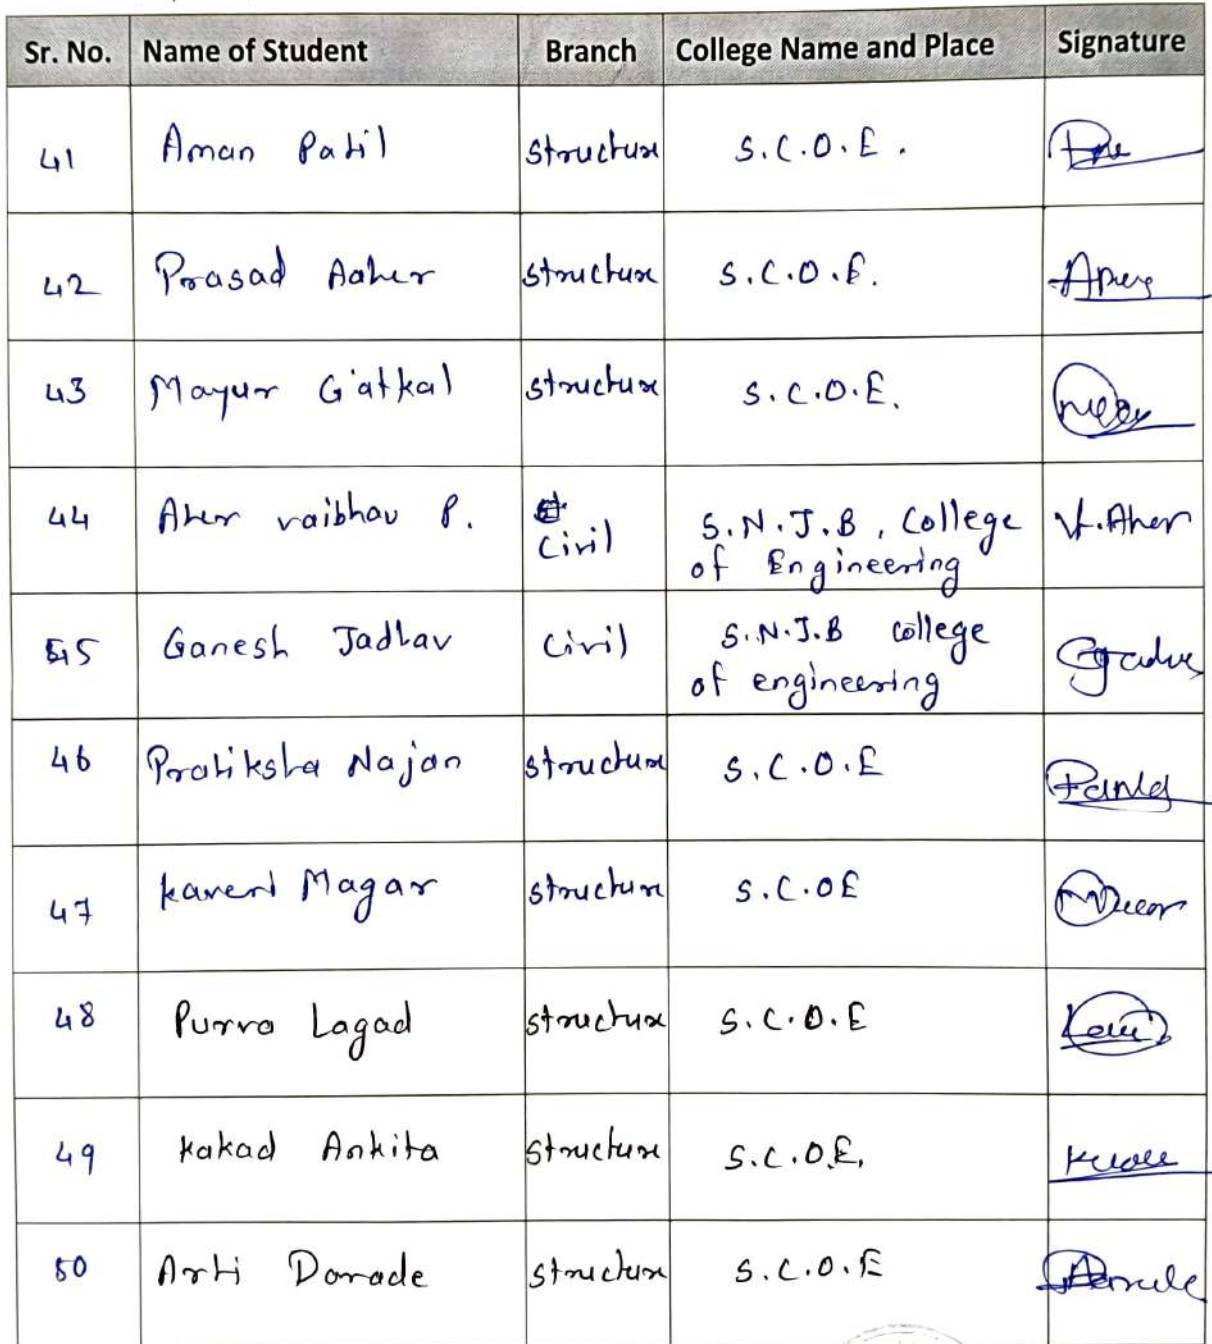 Sr. No. Name of Student Branch College Name and Place Signature
41 Aman Patil structure S.C.O.E.
42 Prasad Aaher structure S.C.O.E.
43 Mayur Gatkal structure S.C.O.E.
44 Aher vaibhav P. Civil S.N.J.B, College of Engineering V.Aher
45 Ganesh Jadhav Civil S.N.J.B college of engineering
46 Pratiksha Najan structure S.C.O.E
47 kaveri Magar structure S.C.OE
48 Purva Lagad structure S.C.O.E
49 kakad Ankita structure S.C.O.E.
50 Arti Darade structure S.C.O.E